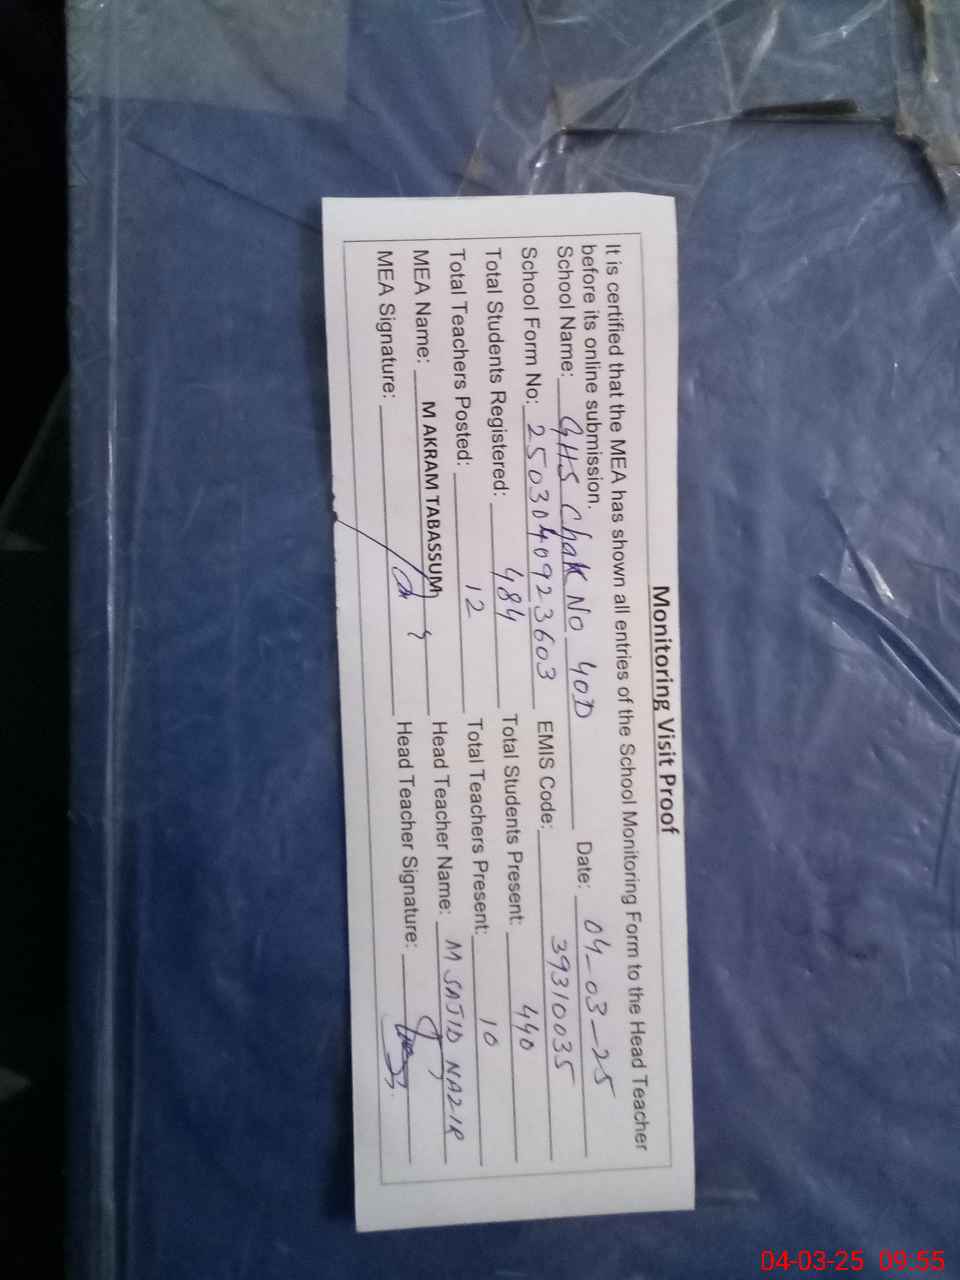 Monitoring Visit Proof
It is certified that the MEA has shown all entries of the School Monitoring Form to the Head Teacher
before its online submission.
School Name: GHS Chak No 40D Date: 04-03-25
School Form No: 2503040923603 EMIS Code: 39310035
Total Students Registered: 484 Total Students Present: 440
Total Teachers Posted: 12 Total Teachers Present: 10
MEA Name: M AKRAM TABASSUM Head Teacher Name: M SAJID NAZIR
MEA Signature: Head Teacher Signature:
04-03-25 09:55